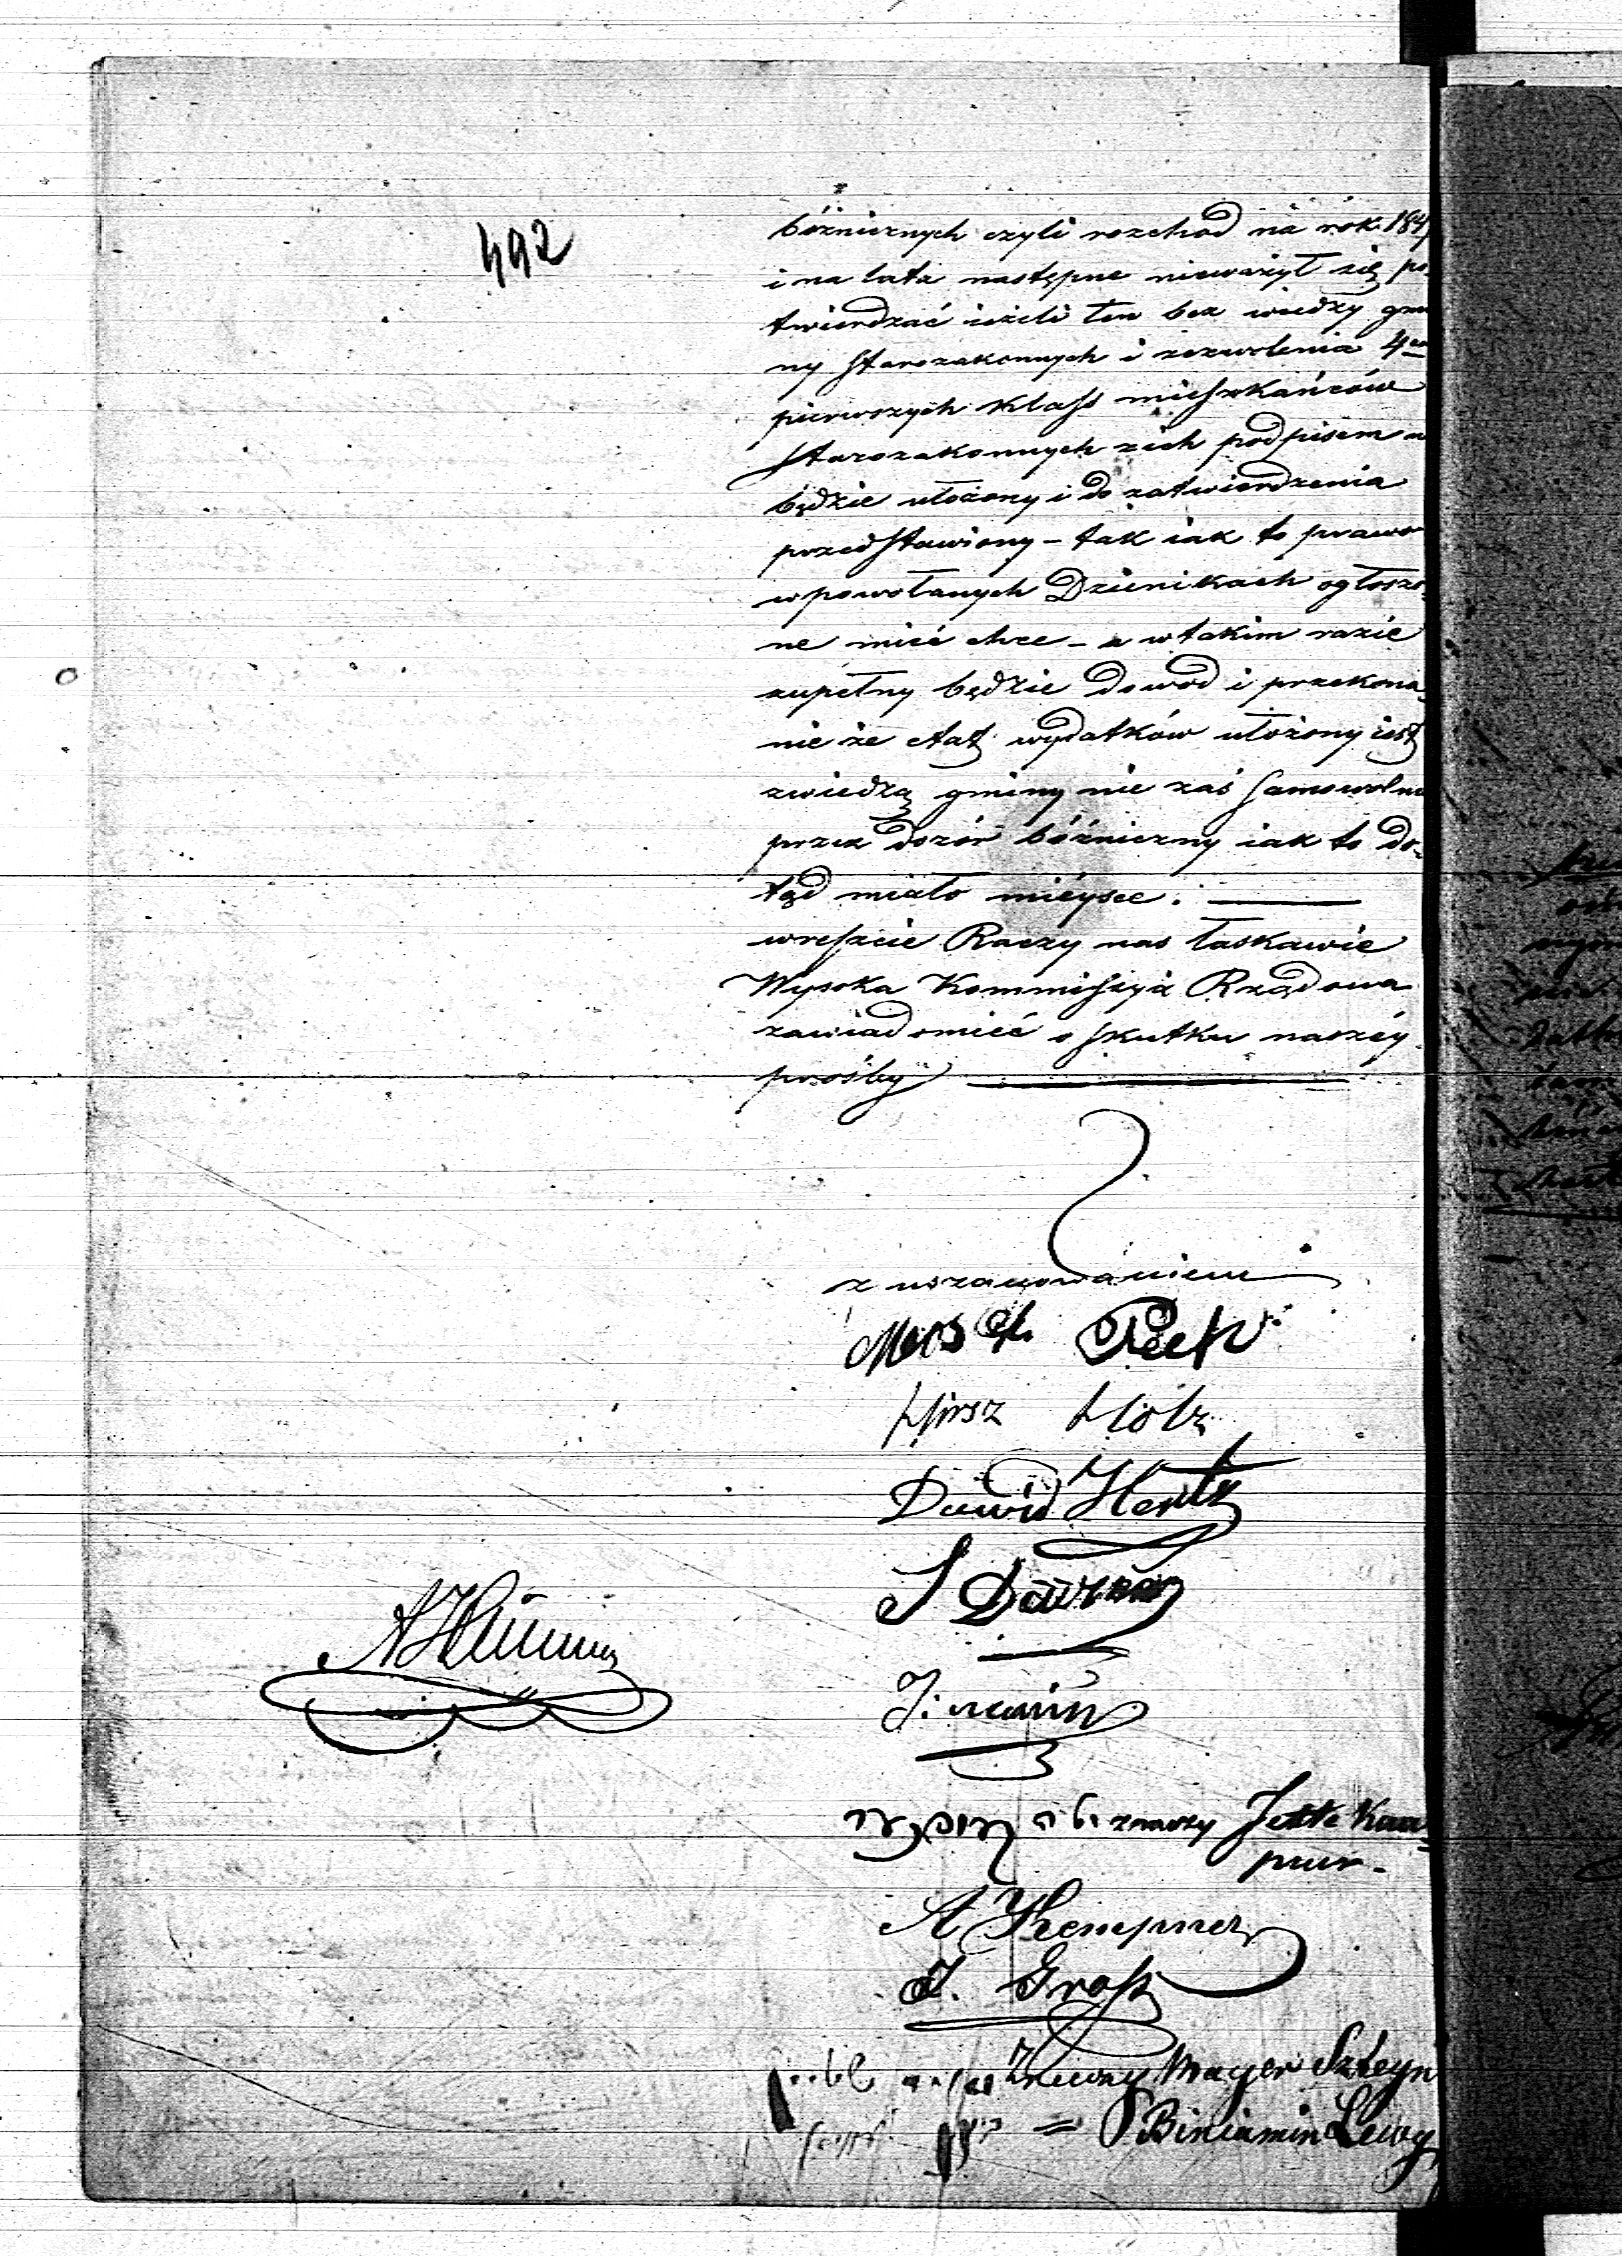 492
bóżnicznych czyli rozchod na rok 184
i na lata następne nieważył się po
twierdzać ieżeli ten bez wiedzy gmi
ny Starozakonnych i zezwolenia 4ech
pierwszych Klass mieszkańców
Starozakonnych z ich podpisem
będzie ułożony i do zatwierdzenia
przedstawiony – tak iak to prawo
w powołanych Dzienikach ogłoszo-
ne mieć chce – a w takim razie
zupełny będzie dowod i przekona-
nie że etat wydatków ułożony iest
z wiedzą gminy nie zaś samowolnie
przez dozór bóżniczny iak to do-
tąd miało mieysce. ———
wreszcie Raczy nas łaskawie
Wysoka Kommissyia Rządowa
zawiadomić o skutku naszéy
prośby ———
z uszanowaniem
Hirsz Holz
Dawid Hertz
znaczy Jette Kem-
pner.
A Kempner
J. Gross
Znaczy Mayer Szteyn
= Biniamin Lewy